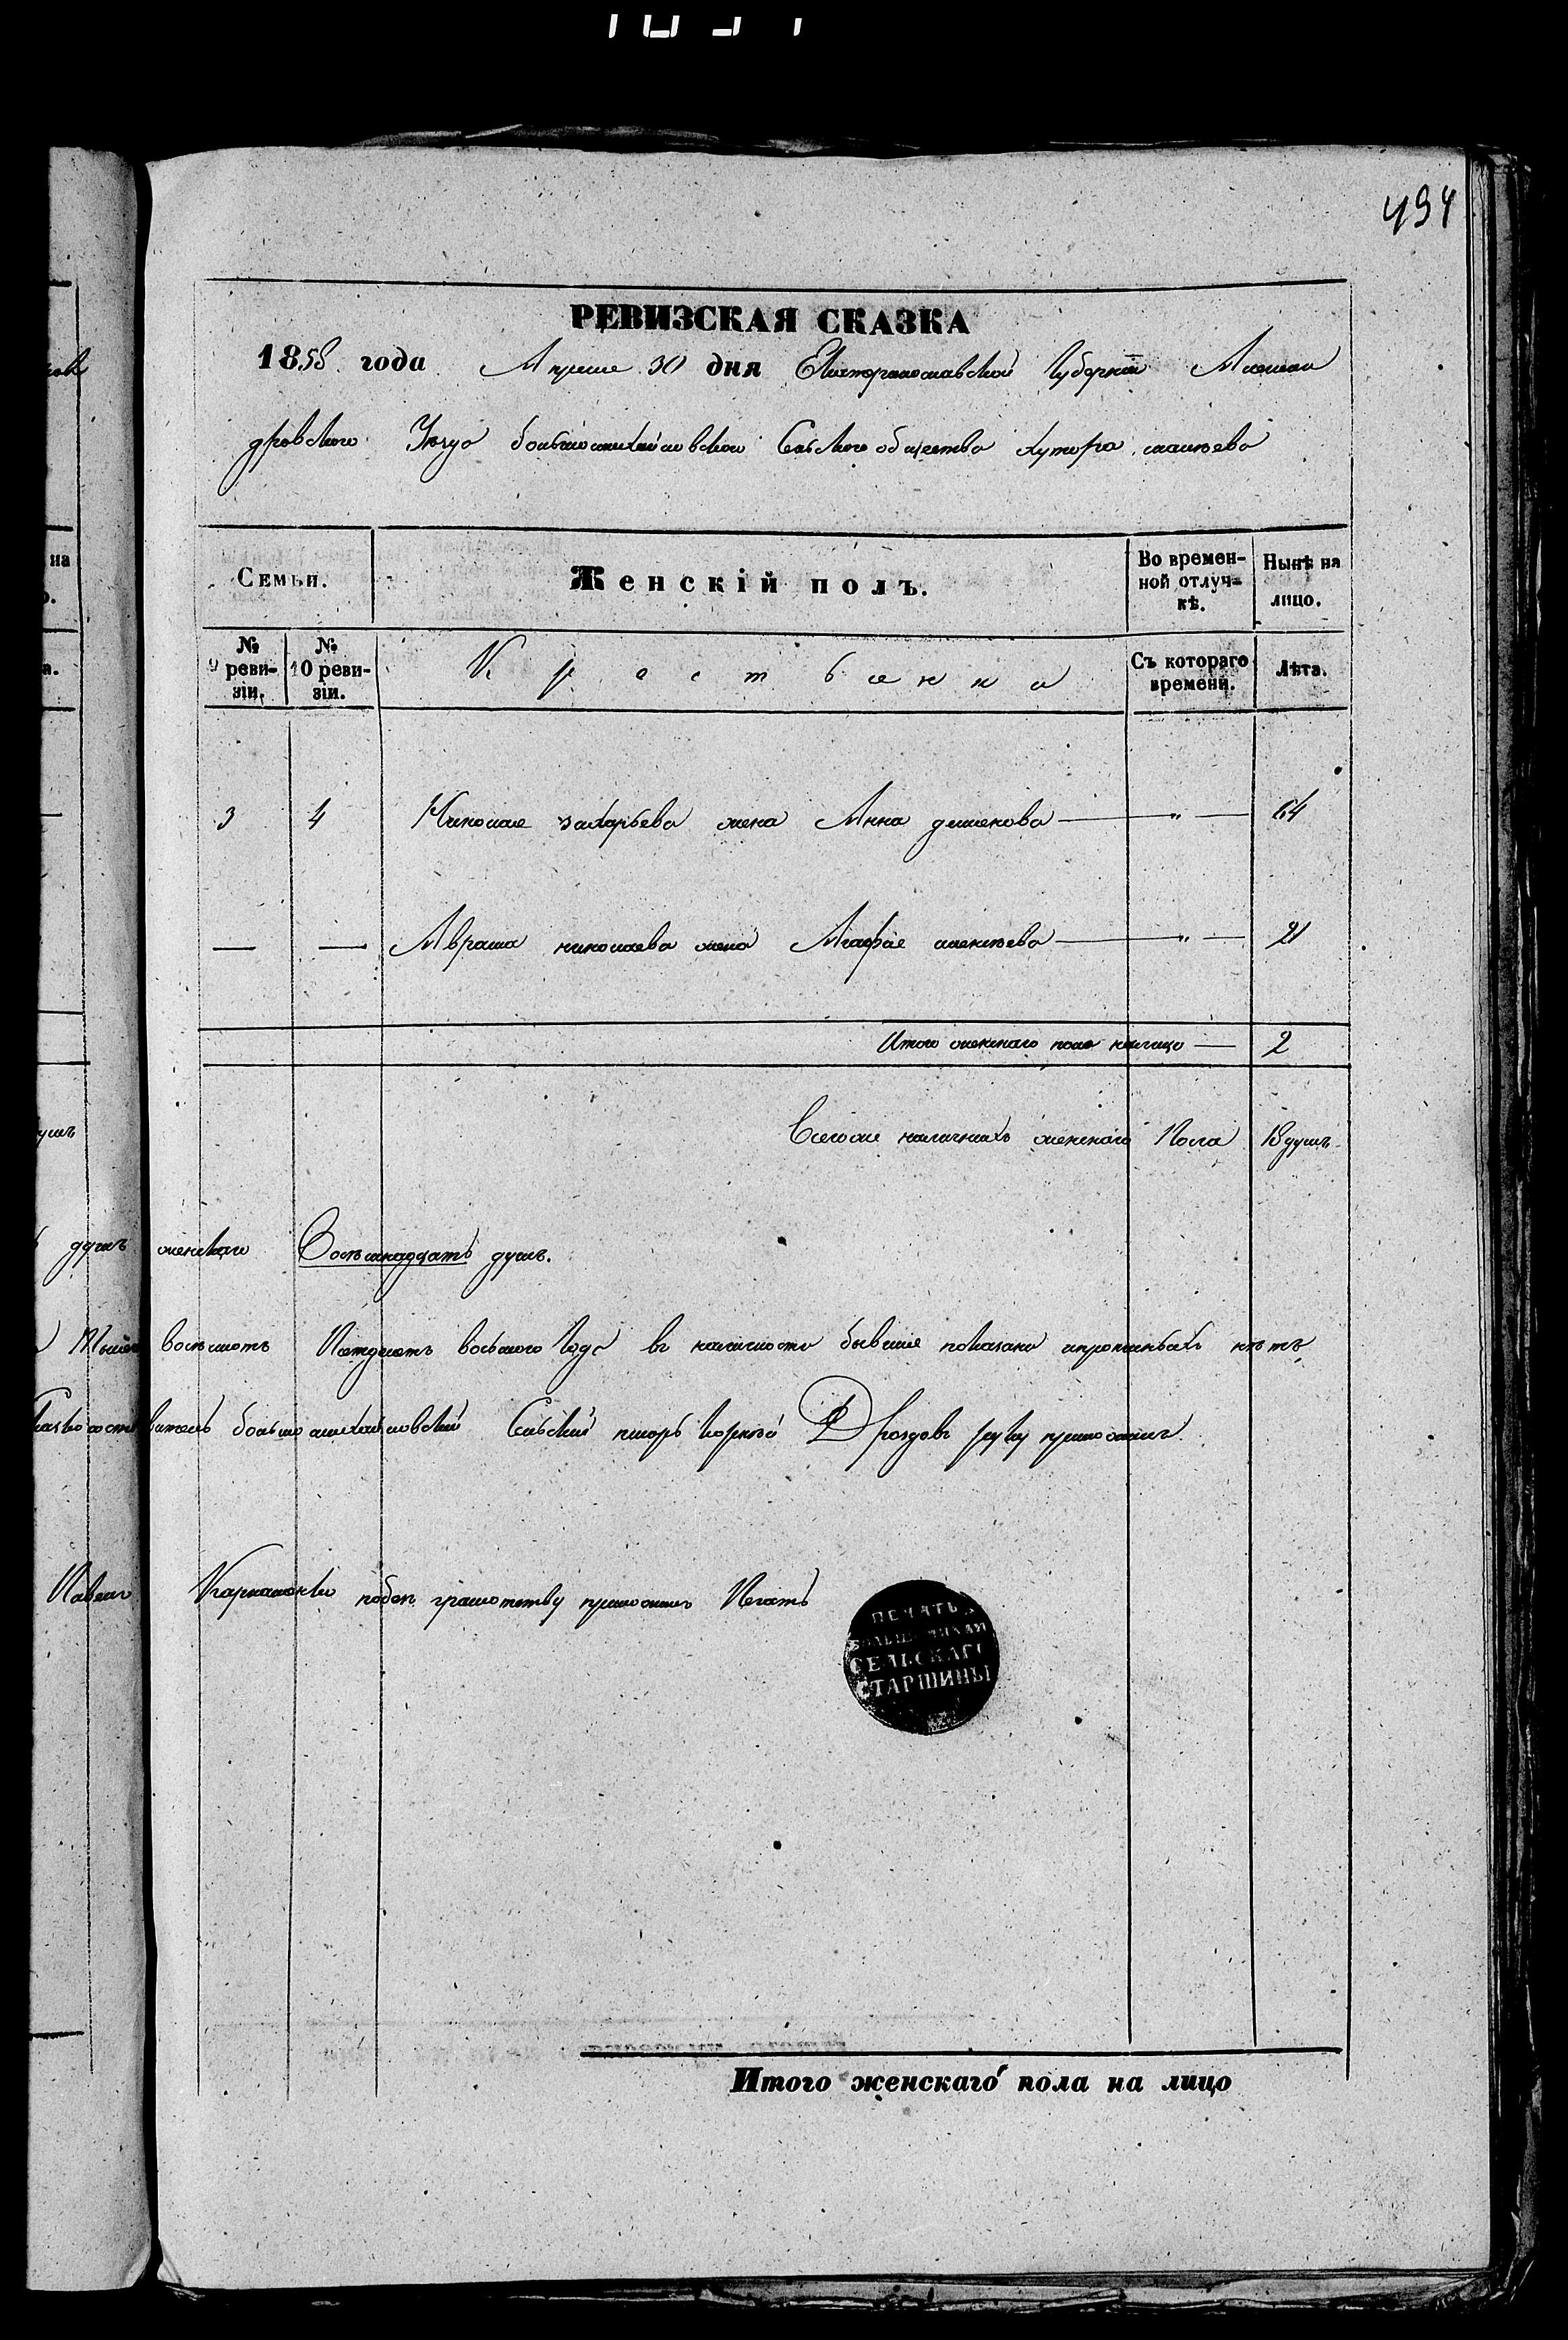 494
РЕВИЗСКАЯ СКАЗКА
1858 года Апреля 30 дня Екатеринославской Губернiи Алексан
дровского Уезда большемихайловского Сельского общества хутора
Семьи. Женскiй полъ. Во времен-ной отлуч-кѣ. Нынѣ на лицо.
№ 9 реви-зiи. № 10 реви-зiи. Съ котораго времени. Лѣта.
3 4 Николая захарьева жена Анна — " — 64
— — Абрама николаева жена Агафия алексѣева — " — 21
Итого женскаго пола налицо — 2
Всего же наличныхъ женскаго Пола 18 душъ
душъ женскаго Восемнадцать душъ.
восемсотъ Пятдесятъ восьмого Года въ наличности бывшие показани ипрописныхъ нѣтъ
большемихайловский Сельский писарь Корнѣй Дроздовъ руку приложилъ
Павелъ грамотству приложилъ Печать
ПЕЧАТЬ
СЕЛЬСКАГО
СТАРШИНЫ
Итого женскаго пола на лицо